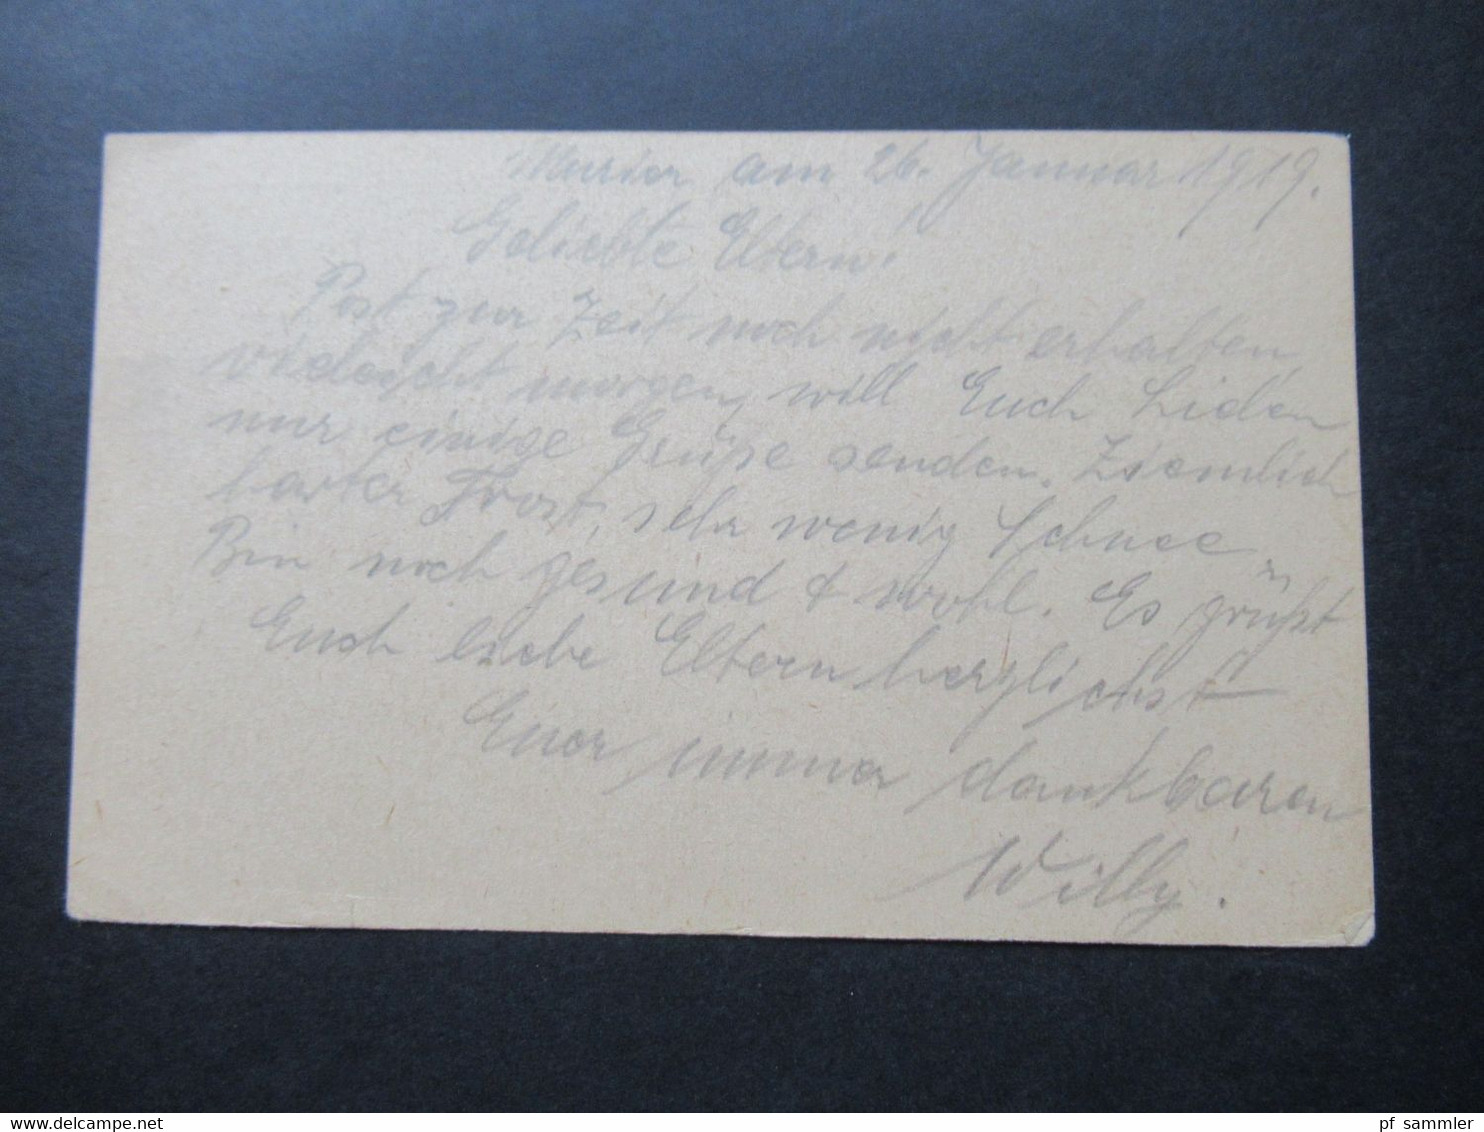 am 26. Januar 1919.
Geliebte Eltern!
Post zur Zeit noch nicht erhalten,
vieleicht morgen, will Euch Lieben
nur einige Grüße senden. Ziemlich
harter Frost, sehr wenig Schnee.
Bin noch gesund & wohl. Es grüßt
Euch liebe Eltern herzlichst
Euer immer dankbaren
Willy.
pf_sammler